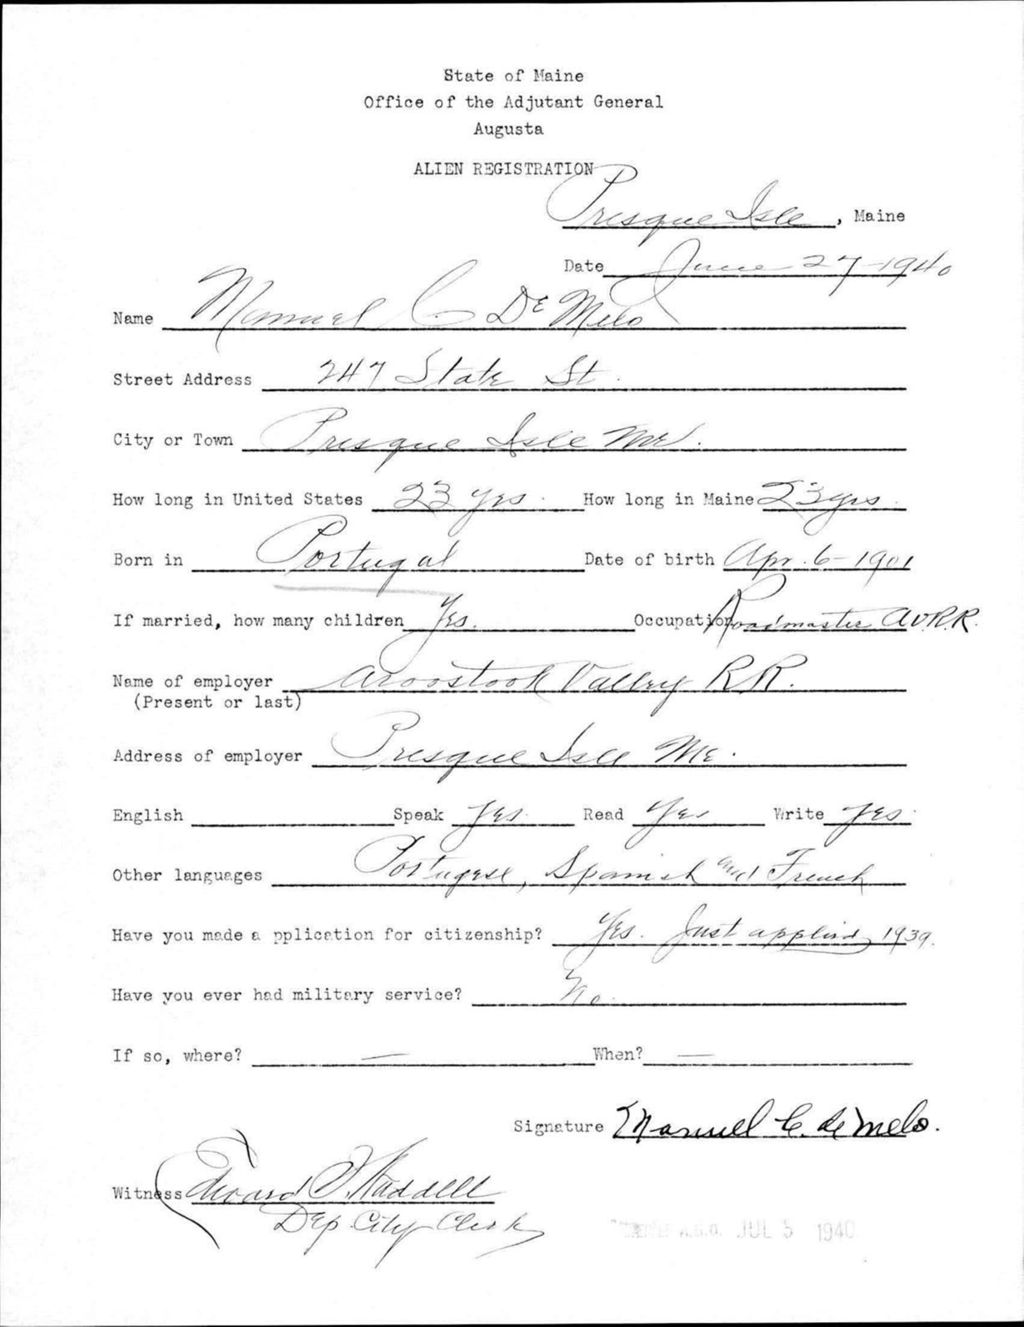 State of Maine
Office of the Adjutant General
Augusta
ALIEN REGISTRATION
Presque Isle, Maine
Date June 27-1940
Name Manuel C. De Melo
Street Address 247 State St.
City or Town Presque Isle Me.
How long in United States 23 yrs. How long in Maine 23 yrs.
Born in Portugal Date of birth Apr. 6-1901
If married, how many children Yes. Occupation Roadmaster AVRR.
Name of employer Aroostook Valley RR.
(Present or last)
Address of employer Presque Isle Me.
English Speak Yes. Read Yes Write Yes.
Other languages Portugese, Spanish and French
Have you made a pplication for citizenship? Yes. Just applied 1939.
Have you ever had military service? No.
If so, where? — When? —
Signature Manuel C. de Melo.
Witness Edward P. Waddell
Dep City Clerk
A.G.O. JUL 5 1940